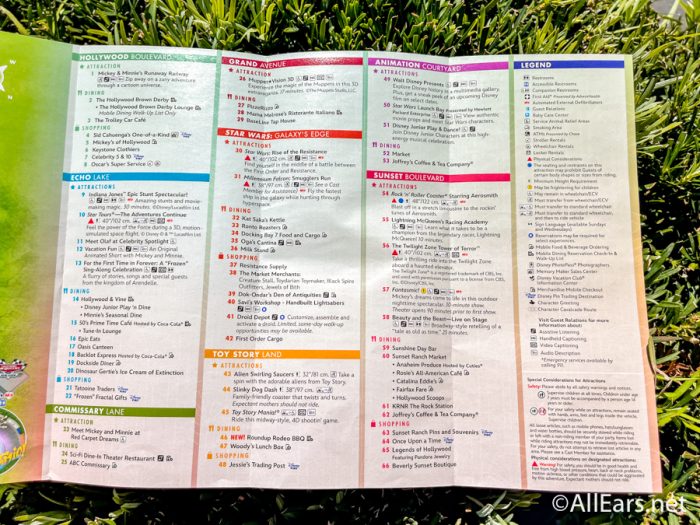 HOLLYWOOD BOULEVARD
ATTRACTION
1 Mickey & Minnie's Runaway Railway
Zip away on a zany adventure
through a cartoon universe.
DINING
2 The Hollywood Brown Derby
• The Hollywood Brown Derby Lounge
Mobile Dining Walk-Up List Only
3 The Trolley Car Café
SHOPPING
4 Sid Cahuenga's One-of-a-Kind
5 Mickey's of Hollywood
6 Keystone Clothiers
7 Celebrity 5 & 10
8 Oscar's Super Service
ECHO LAKE
ATTRACTIONS
9 Indiana Jones™ Epic Stunt Spectacular!
Amazing stunts and movie-
making magic. 30 minutes.
10 Star Tours®—The Adventures Continue
40"/102 cm.
Feel the power of the Force during a 3D, motion-
simulated space flight.
11 Meet Olaf at Celebrity Spotlight
12 Vacation Fun An Original
Animated Short with Mickey and Minnie.
13 For the First Time in Forever: A "Frozen"
Sing-Along Celebration
A flurry of stories, songs and special guests
from the kingdom of Arendelle.
DINING
14 Hollywood & Vine
• Disney Junior Play 'n Dine
• Minnie's Seasonal Dine
15 50's Prime Time Café Hosted by Coca-Cola®
• Tune-In Lounge
16 Epic Eats
17 Oasis Canteen
18 Backlot Express Hosted by Coca-Cola®
19 Dockside Diner
20 Dinosaur Gertie's Ice Cream of Extinction
SHOPPING
21 Tatooine Traders
22 "Frozen" Fractal Gifts
COMMISSARY LANE
ATTRACTION
23 Meet Mickey and Minnie at
Red Carpet Dreams
DINING
24 Sci-Fi Dine-In Theater Restaurant
25 ABC Commissary
GRAND AVENUE
ATTRACTION
26 Muppet★Vision 3D
Experience the magic of the Muppets in this 3D
extravaganza. 17 minutes. ©The Muppets Studio, LLC
DINING
27 PizzeRizzo
28 Mama Melrose's Ristorante Italiano
29 BaseLine Tap House
STAR WARS: GALAXY'S EDGE
ATTRACTION
30 Star Wars: Rise of the Resistance
40"/102 cm.
Find yourself in the middle of a battle
between the First Order and Resistance.
31 Millennium Falcon: Smugglers Run
38"/97 cm. See a Cast
Member for Assistance. Fly the fastest
ship in the galaxy while hunting through
hyperspace.
DINING
32 Kat Saka's Kettle
33 Ronto Roasters
34 Docking Bay 7 Food and Cargo
35 Oga's Cantina
36 Milk Stand
SHOPPING
37 Resistance Supply
38 The Market Merchants:
Creature Stall, Toydarian Toymaker, Black Spire
Outfitters, Jewels of Bith
39 Dok-Ondar's Den of Antiquities
40 Savi's Workshop - Handbuilt Lightsabers
41 Droid Depot Customize, assemble and
activate a droid. Limited, same-day walk-up
opportunities may be available.
42 First Order Cargo
TOY STORY LAND
ATTRACTIONS
43 Alien Swirling Saucers 32"/81 cm. Take a
spin with the adorable aliens from Toy Story.
44 Slinky Dog Dash 38"/97 cm.
Family-friendly coaster that twists and turns.
Expectant mothers should not ride.
45 Toy Story Mania!
Ride this midway-style, 4D shootin' game.
DINING
46 NEW! Roundup Rodeo BBQ
47 Woody's Lunch Box
SHOPPING
48 Jessie's Trading Post
ANIMATION COURTYARD
ATTRACTIONS
49 Walt Disney Presents
Explore Disney history in a multimedia gallery.
Plus, get a sneak peek of an upcoming Disney
film on select dates.
50 Star Wars Launch Bay Presented by Hewlett
Packard Enterprise View authentic
movie props and meet Star Wars characters.
51 Disney Junior Play & Dance!
Join Disney Junior Characters at this high-
energy musical celebration.
DINING
52 Market
53 Joffrey's Coffee & Tea Company®
SUNSET BOULEVARD
ATTRACTIONS
54 Rock 'n' Roller Coaster® Starring Aerosmith
48"/122 cm.
Blast off in a stretch limousine to the rockin'
tunes of Aerosmith.
55 Lightning McQueen's Racing Academy
Learn what it takes to be a
champion from the legendary racer, Lightning
McQueen! 10 minutes.
56 The Twilight Zone Tower of Terror™
40"/102 cm.
Take a thrilling ride into the Twilight Zone
aboard a haunted elevator.
The Twilight Zone® is a registered trademark of CBS, Inc.
and used with permission pursuant to a license from CBS,
Inc. ©Disney/CBS, Inc.
57 Fantasmic!
Mickey's dreams come to life in this outdoor
nighttime spectacular. 30-minute show.
Theater opens 90 minutes prior to first show.
58 Beauty and the Beast—Live on Stage
Broadway-style retelling of a
"tale as old as time." 30 minutes.
DINING
59 Sunshine Day Bar
60 Sunset Ranch Market
• Anaheim Produce Hosted by Cuties®
• Rosie's All-American Café
• Catalina Eddie's
• Fairfax Fare
• Hollywood Scoops
61 KRNR The Rock Station
62 Joffrey's Coffee & Tea Company®
SHOPPING
63 Sunset Ranch Pins and Souvenirs
64 Once Upon a Time
65 Legends of Hollywood
Featuring Pandora Jewelry
66 Beverly Sunset Boutique
LEGEND
Restrooms
Accessible Restrooms
Companion Restrooms
First Aid
Automated External Defibrillators
Guest Relations
Baby Care Center
Service Animal Relief Areas
Smoking Area
Stroller Rentals
Wheelchair Rentals
Locker Rentals
Physical Considerations
The seating and restraints on this
attraction may prohibit Guests of
certain body shapes or sizes from riding.
Minimum Height Requirement
May be frightening for children
May remain in wheelchair/ECV
Must transfer from wheelchair/ECV
Must transfer to standard wheelchair
Must transfer to standard wheelchair,
and then to ride vehicle
Sign Language (available Sundays
and Wednesdays)
Reservations may be required for
select experiences.
Mobile Food & Beverage Ordering
Mobile Dining Reservation Check-In &
Walk-Up List
Disney PhotoPass® Photographers
Memory Maker Sales Center
Disney Vacation Club®
Information Center
Merchandise Mobile Checkout
Disney Pin Trading Destination
Character Greeting
Character Cavalcade Route
Visit Guest Relations for more
information about:
Assistive Listening
Handheld Captioning
Video Captioning
Audio Description
*Emergency services available by calling
911.
Special Considerations for Attractions
©AllEars.net